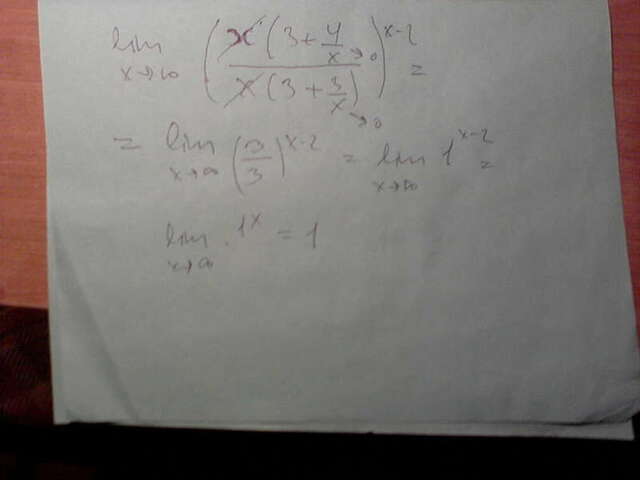 lim x→∞ (x(3+4/x→0)/x(3+3/x→0))^x-2 =
= lim x→∞ (3/3)^x-2 = lim x→∞ 1^x-2 =
lim x→∞ 1^x = 1